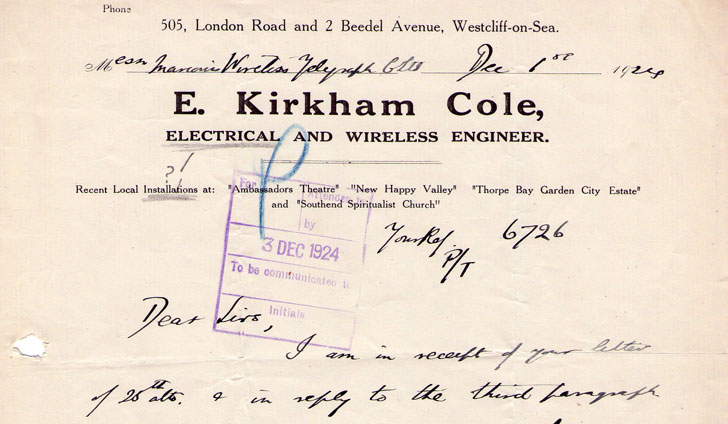 Phone
505, London Road and 2 Beedel Avenue, Westcliff-on-Sea.
Messrs Marconi Wireless Telegraph C Ltd Dec 1st 1924
E. Kirkham Cole,
ELECTRICAL AND WIRELESS ENGINEER.
?!
Recent Local Installations at: "Ambassadors Theatre" "New Happy Valley" "Thorpe Bay Garden City Estate"
and "Southend Spiritualist Church"
For Attended to
by
3 DEC 1924
To be communicated to
Initials
Your Ref. 6726
P/T
Dear Sirs,
I am in receipt of your letter
of 28th ulto. & in reply to the third paragraph